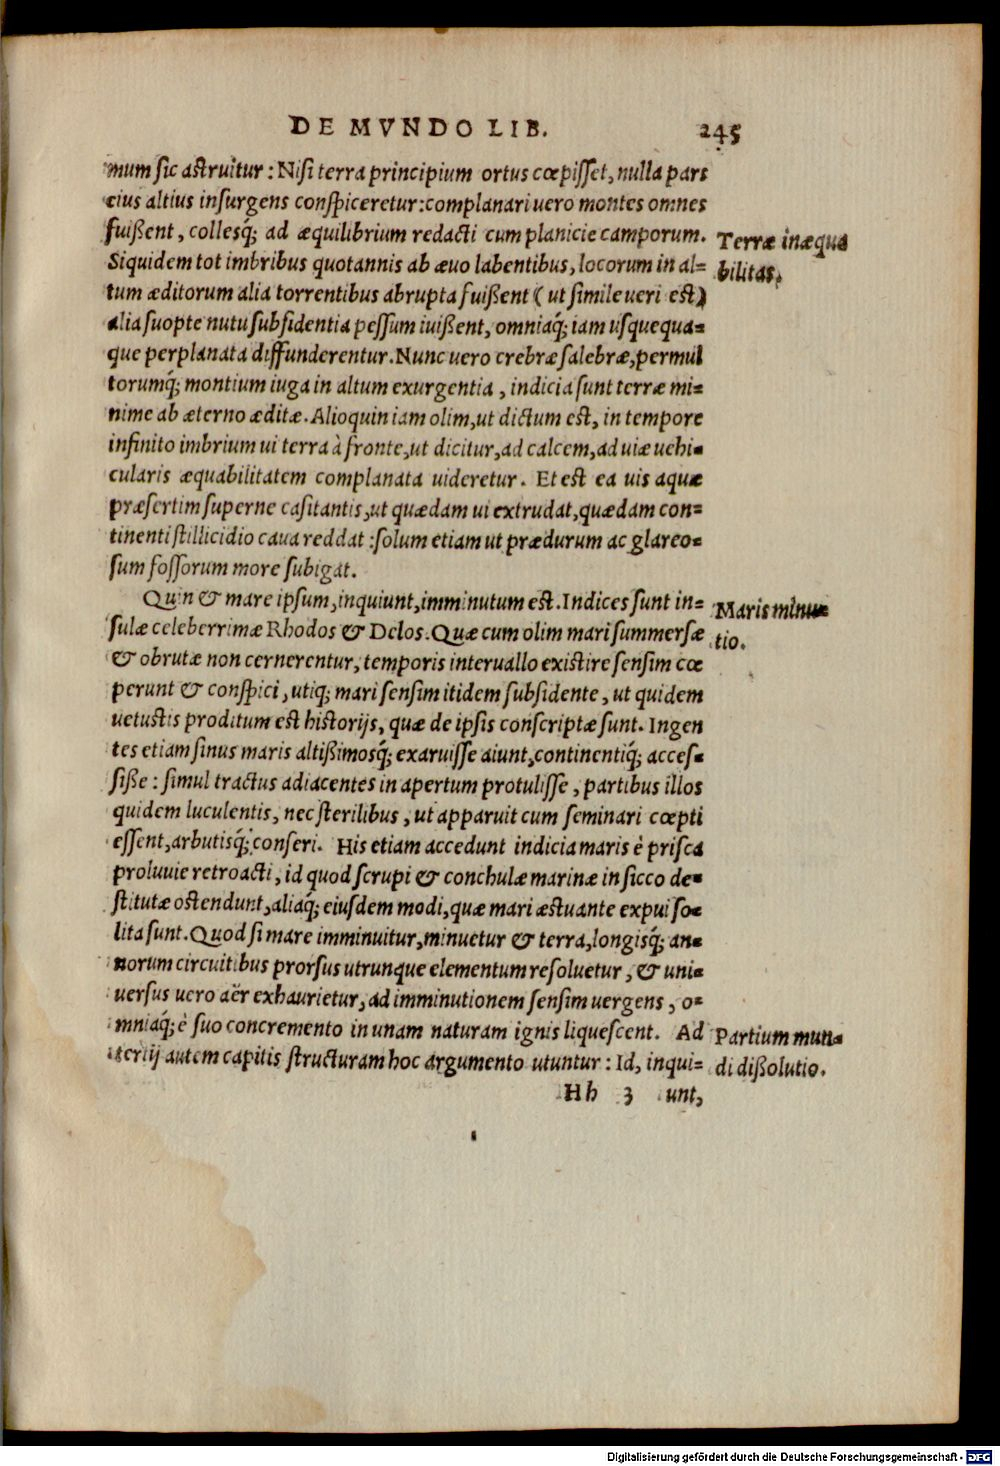 DE MVNDO LIB. 245
mum sic astruitur: Nisi terra principium ortus cœpisset, nulla pars
eius altius insurgens conspiceretur: complanari uero montes omnes
fuißent, collesq́; ad æquilibrium redacti cum planicie camporum.
Terræ inæqua
Siquidem tot imbribus quotannis ab æuo labentibus, locorum in al=
bilitas.
tum æditorum alia torrentibus abrupta fuißent (ut simile ueri est)
alia suopte nutu subsidentia pessum iuißent, omniaq́; iam usquequa=
que perplanata diffunderentur. Nunc uero crebræ salebræ, permul
torumq́; montium iuga in altum exurgentia, indicia sunt terræ mi=
nime ab æterno æditæ. Alioquin iam olim, ut dictum est, in tempore
infinito imbrium ui terra à fronte, ut dicitur, ad calcem, ad uiæ uehi=
cularis æquabilitatem complanata uideretur. Et est ea uis aquæ
præsertim superne casitantis, ut quædam ui extrudat, quædam con=
tinenti stillicidio caua reddat: solum etiam ut prædurum ac glareo=
sum fossorum more subigat.
Quin & mare ipsum, inquiunt, imminutum est. Indices sunt in=
Maris minu=
sulæ celeberrimæ Rhodos & Delos. Quæ cum olim mari summersæ
tio.
& obrutæ non cernerentur, temporis interuallo existire sensim cœ
perunt & conspici, utiq; mari sensim itidem subsidente, ut quidem
uetustis proditum est historijs, quæ de ipsis conscriptæ sunt. Ingen
tes etiam sinus maris altißimosq́; exaruisse aiunt, continentiq́; acces=
siße: simul tractus adiacentes in apertum protulisse, partibus illos
quidem luculentis, nec sterilibus, ut apparuit cum seminari cœpti
essent, arbutisq́; conseri. His etiam accedunt indicia maris è prisca
proluuie retroacti, id quod scrupi & conchulæ marinæ in sicco de=
stitutæ ostendunt, aliaq́; eiusdem modi, quæ mari æstuante expui so=
lita sunt. Quod si mare imminuitur, minuetur & terra, longisq́; an=
norum circuitibus prorsus utrunque elementum resoluetur, & uni=
uersus uero aër exhaurietur, ad imminutionem sensim uergens, o=
mniaq́; è suo concremento in unam naturam ignis liquescent. Ad
Partium mun=
tertij autem capitis structuram hoc argumento utuntur: Id, inqui=
di dißolutio.
Hh 3 unt,
Digitalisierung gefördert durch die Deutsche Forschungsgemeinschaft - DFG